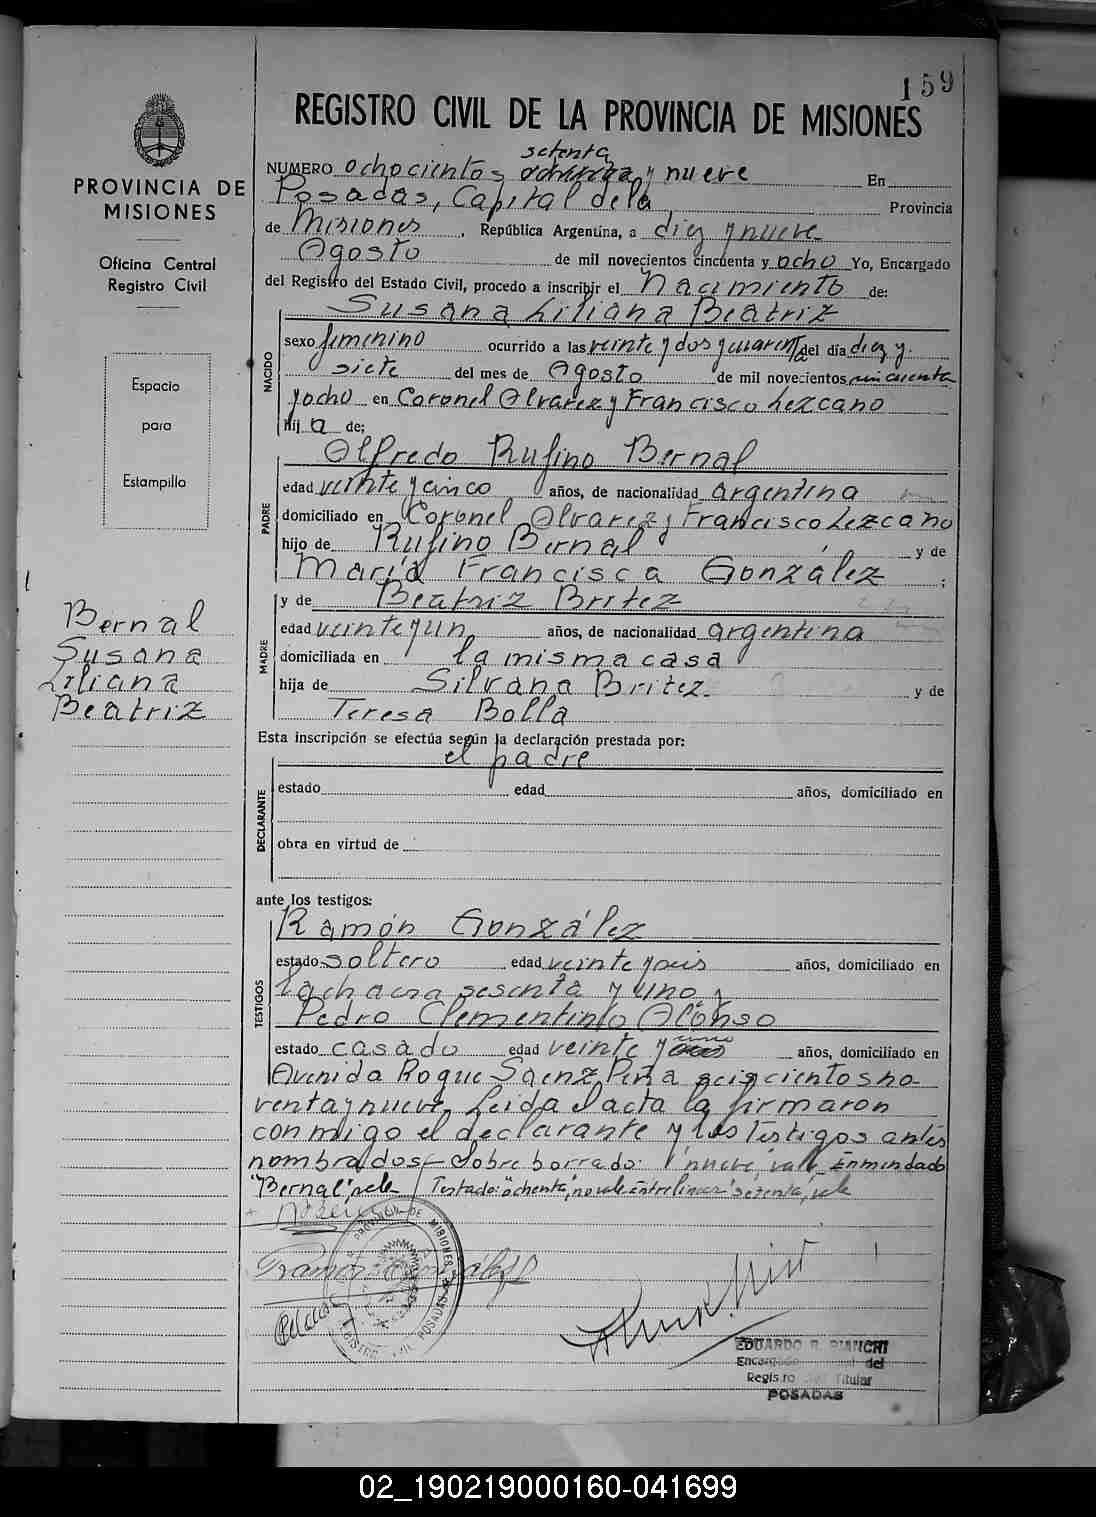 159
REGISTRO CIVIL DE LA PROVINCIA DE MISIONES
PROVINCIA DE
MISIONES
Oficina Central
Registro Civil
Espacio
para
Estampilla
Bernal
Susana
Liliana
Beatriz
setenta
NUMERO ochocientos ochenta y nueve En
Posadas, Capital de la Provincia
de Misiones, República Argentina, a diez y nueve
Agosto de mil novecientos cincuenta y ocho Yo, Encargado
del Registro del Estado Civil, procedo a inscribir el Nacimiento de:
Susana Liliana Beatriz
NACIDO
sexo femenino ocurrido a las veinte y dos y cuarenta del día diez y
siete del mes de Agosto de mil novecientos cincuenta
y ocho en Coronel Alvarez y Francisco Lezcano
hij a de;
Alfredo Rufino Bernal
PADRE
edad veinte y cinco años, de nacionalidad argentina
domiciliado en Coronel Alvarez y Francisco Lezcano
hijo de Rufino Bernal y de
María Francisca González ;
y de Beatriz Britez
MADRE
edad veinte y un años, de nacionalidad argentina
domiciliada en la misma casa
hija de Silvana Britez y de
Teresa Bolla
Esta inscripción se efectúa según la declaración prestada por:
el padre
DECLARANTE
estado edad años, domiciliado en
obra en virtud de
ante los testigos:
Ramón González
TESTIGOS
estado soltero edad veinte y seis años, domiciliado en
la chacra sesenta y uno y
Pedro Clementino Alonso
cinco
estado casado edad veinte y años, domiciliado en
Avenida Roque Saenz Peña seiscientos no-
venta y nueve. Leida el acta la firmaron
conmigo el declarante y los testigos antes
nombrados. Sobre borrado: "nueve", vale. Enmendado
"Bernal", vale Testado: "ochenta", no vale Entrelinear "setenta", vale
Ramon González
PROVINCIA DE MISIONES
POSADAS
EDUARDO R. BIANCHI
Encargado del
Registro Titular
POSADAS
02_190219000160-041699